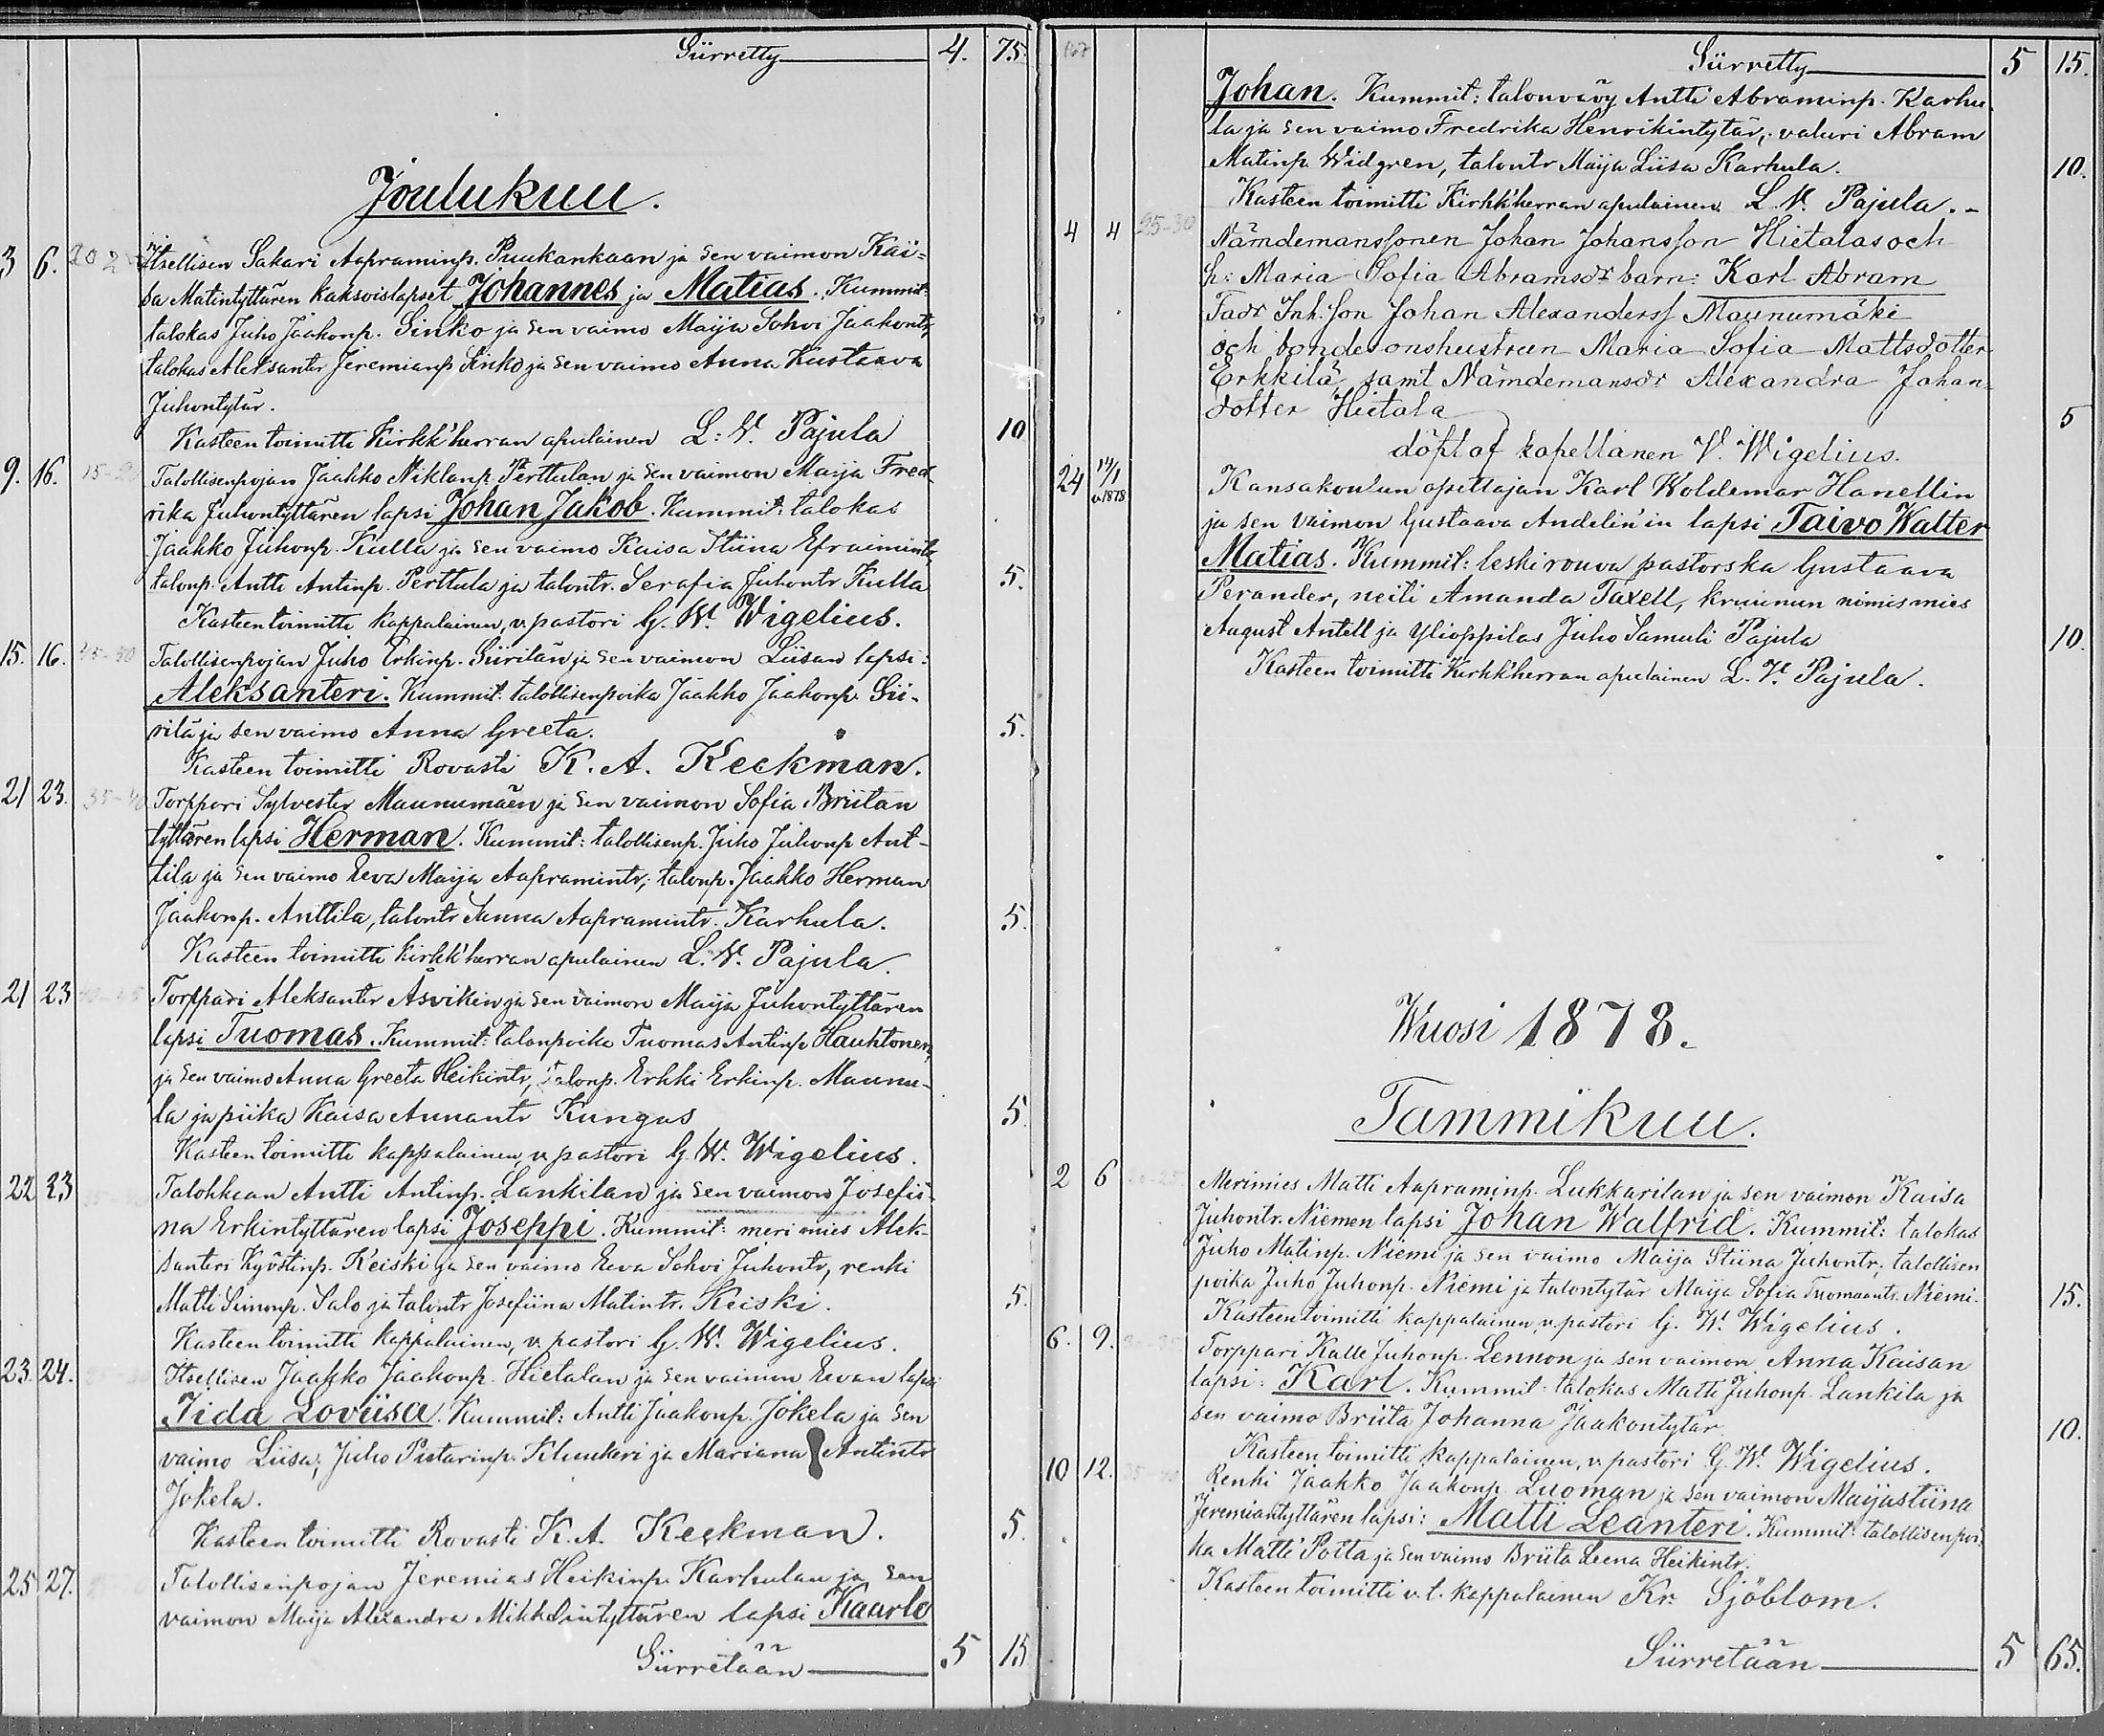 Siirretty 4. 75.
Joulukuu.
3 6. Itsellisen Sakari Aapraminp. Puukankaan ja sen vaimon Kai-
sa Matintyttären kaksoislapset Johannes ja Matias. Kummit:
talokas Juho Jaakonp. Sinko ja sen vaimo Maija Sohvi Jaakontr,
talokas Aleksanter Jeremianp Sinko ja sen vaimo Anna Kustaava
Juhontytär.
Kasteen toimitti Kirkk'herran apulainen L: V. Pajula 10
9. 16. 15-20 Talollisenpojan Jaakko Niklanp. Perttulan ja sen vaimon Maija Fred-
rika Juhontyttären lapsi Johan Jakob. Kummit: talokas
Jaakko Juhonp. Kulla ja sen vaimo Kaisa Stiina Efraimintr,
talonp. Antti Antinp. Perttula ja talontr. Serafia Juhontr Kulla 5.
Kasteen toimitti kappalainen, v. pastori G. W. Wigelius.
15. 16. Talollisenpojan Juho Erkinp. Siirilän ja sen vaimon Liisan lapsi:
Aleksanteri. Kummit: talollisenpoika Jaakko Jaakonp. Sii-
rilä ja sen vaimo Anna Greeta. 5.
Kasteen toimitti Rovasti K. A. Keckman.
21 23. 35-40 Torppari Sylvester Maunumäen ja sen vaimon Sofia Briitan
tyttären lapsi Herman. Kummit: talollisenp. Juho Juhonp Ant-
tila ja sen vaimo Eeva Maija Aapramintr; talonp. Jaakko Herman
Jaakonp. Anttila, talontr Sanna Aapramintr. Karhula. 5.
Kasteen toimitti kirkk'herran apulainen L. V. Pajula.
21 23 Torppari Aleksanter Åsvikin ja sen vaimon Maija Juhontyttären
lapsi Tuomas. Kummit: talonpoika Tuomas Antinp Hauhtonen,
ja sen vaimo Anna Greeta Heikintr, Talonp. Erkki Erkinp. Maunu-
la ja piika Kaisa Annantr Kungas 5.
Kasteen toimitti kappalainen, v. pastori G. W. Wigelius.
22 23 Talokkaan Antti Antinp. Lankilan ja sen vaimon Josefii-
na Erkintyttären lapsi Joseppi. Kummit: merimies Alek-
santeri Kyöstinp. Keiski ja sen vaimo Eeva Sohvi Juhontr, renki
Matti Simonp. Salo ja talontr Josefiina Matintr. Keiski. 5.
Kasteen toimitti kappalainen, v. pastori G. W. Wigelius.
23. 24. Itsellisen Jaakko Jaakonp. Hietalan ja sen vaimon Eevan lapsi
Iida Loviisa. Kummit: Antti Jaakonp. Jokela ja sen
vaimo Liisa; Juho Pietarinp. Klemkeri ja Mariana Antintr
Jokela.
Kasteen toimitti Rovasti K. A. Keckman. 5.
25 27. Talollisenpojan Jeremias Heikinp. Karhulan ja sen
vaimon Maija Alexandra Mikkelintyttären lapsi Kaarlo
Siirretään 5 15
Siirretty 5 15.
Johan. Kummit: talonvävy Antti Abraminp. Karhu
la ja sen vaimo Fredrika Henrikintytär, valuri Abram
Matinp Widgren, talontr Maija Liisa Karhula. 10.
Kasteen toimitti Kirkk'herran apulainen L. V. Pajula.-
4 4 25-30 Nämdemanssonen Johan Johansson Hietalas och
h: Maria Sofia Abramsdr barn: Karl Abram
Fadr Inh.son Johan Alexanderss Maunumäki
och bondesonshustrun Maria Sofia Mattsdotter
Erkkilä, samt Nämdemansdr Alexandra Johan-
dotter Hietala 5
döpt af kapellanen V. Wigelius.
24 14/1 v.1878 Kansakoulun opettajan Karl Woldemar Hanellin
ja sen vaimon Gustaava Andelin'in lapsi Taivo Walter
Matias. Kummit: leskirouva pastorska Gustaava
Perander, neiti Amanda Taxell, kruunun nimismies
August Antell ja Ylioppilas Juho Samuli Pajula 10.
Kasteen toimitti Kirkk'herran apulainen L. V. Pajula.
Wuosi 1878.
Tammikuu.
2 6 Merimies Matti Aapraminp. Lukkarilan ja sen vaimon Kaisa
Juhontr. Niemen lapsi Johan Walfrid. Kummit: talokas
Juho Matinp. Niemi ja sen vaimo Maija Stiina Juhontr; talollisen
poika Juho Juhonp. Niemi ja talontytär Maija Sofia Tuomaantr. Niemi. 15.
Kasteen toimitti kappalainen, v. pastori G. W. Wigelius.
6. 9. Torppari Kalle Juhonp. Lennon ja sen vaimon Anna Kaisan
lapsi: Karl. Kummit: talokas Matti Juhonp. Lankila ja
sen vaimo Briita Johanna Jaakontytär. 10.
Kasteen toimitti kappalainen, v. pastori G. W. Wigelius.
10 12. Renki Jaakko Jaakonp. Luoman ja sen vaimon Maijastiina
Jeremiantyttären lapsi: Matti Leanteri. Kummit: talollisenpoi-
ka Matti Potta ja sen vaimo Briita Leena Heikintr.
Kasteen toimitti v. t. kappalainen Kr. Sjöblom.
Siirretään 5 65.